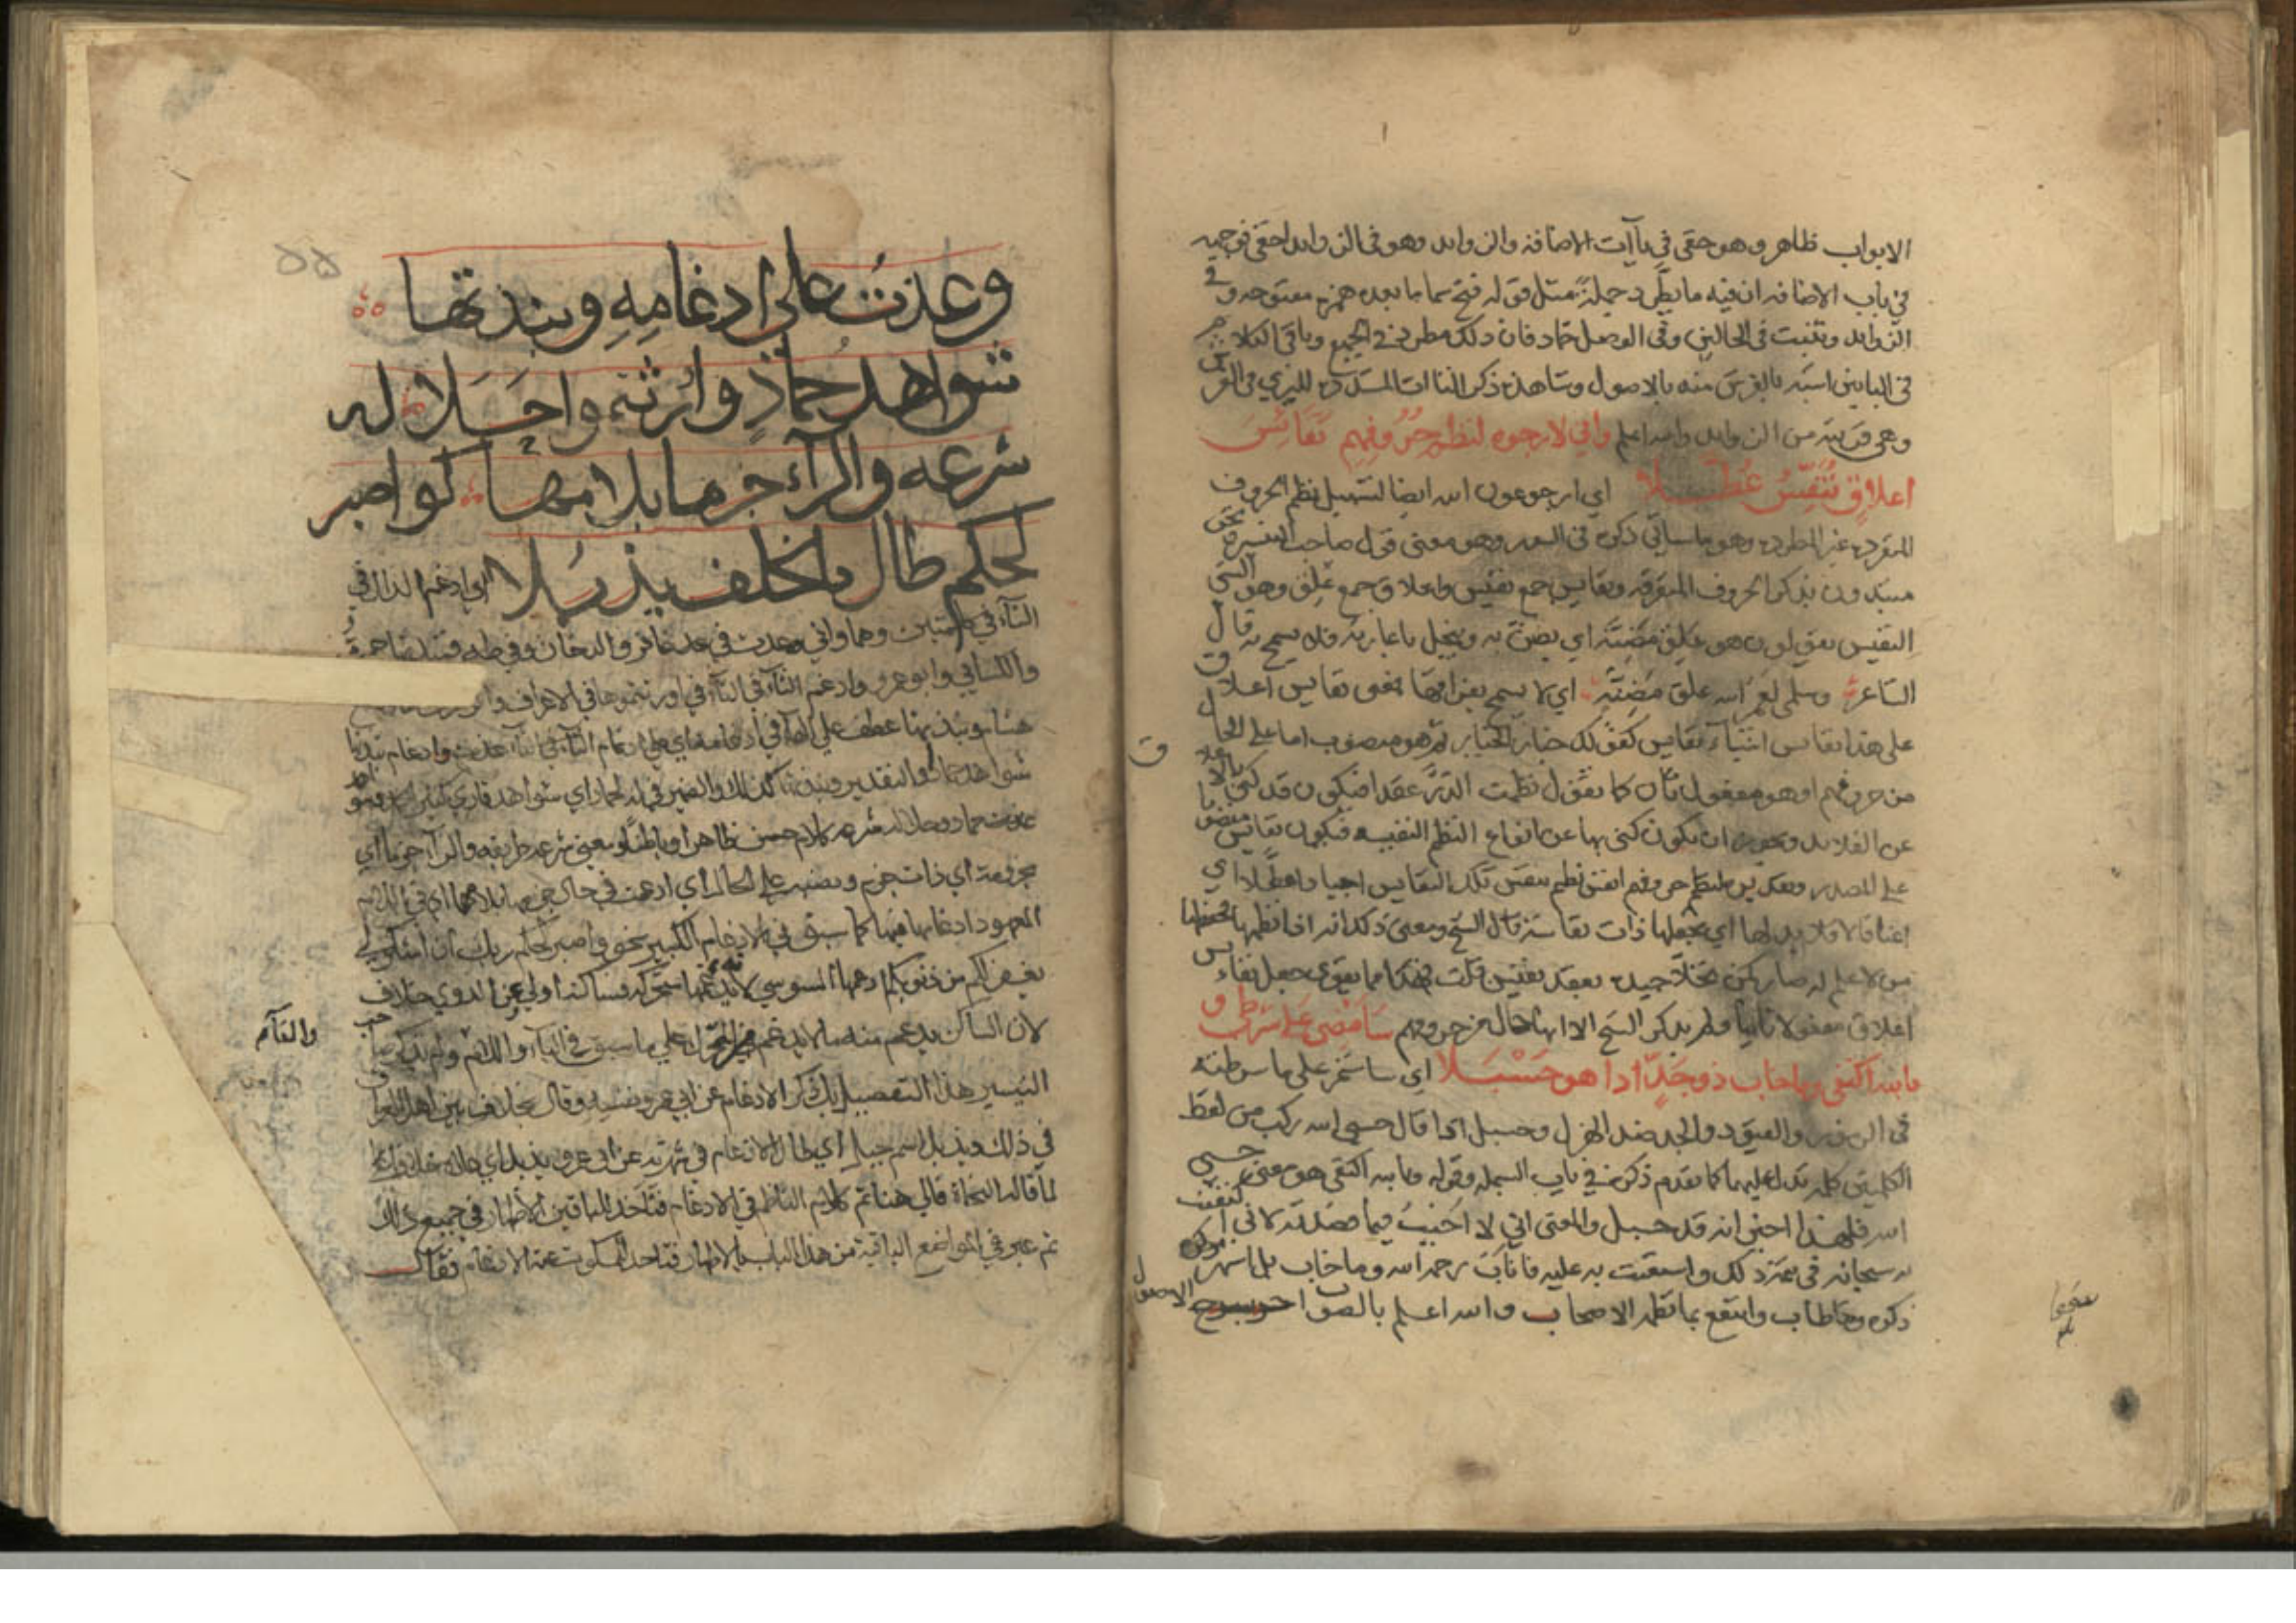 الابواب ظاهر وهو حقي في ياآت الاضافة والزوايد وهو في الزوايد احقي فوجهه
في باب الاضافة ان فيه ما يطرد جملة مثل قوله فتح سما ما بعده همزة مفتوحة وفي
الزوايد وتثبت في الحالين وفي الوصل حماد فان ذلك مطرد في الجميع وباقي الكلام
في البابين اشبه بالفرش منه بالاصول وشاهده ذكر التاات المشددة للبزي في الفرش
وهي قريبة من الزوايد والله اعلم واني لارجوه لنظم حروفهم نفائس
اعلاق تنفس عطلا اي ارجو عون الله ايضا لتسهيل نظم الحروف
المنفردة غير المطردة وهو ما سياتي ذكره في السور وهو معنى قول صاحب التيسير
نذكر الحروف المتفرقة ونفايس جمع نفيس واعلاق جمع علق وهو الشي
النفيس يقولون هو علق مضنة اي يضن به ويبخل باعارته فلا يسمح به قال
الشاعر وسلمى لعمر الله علق مضنة اي لا يسمح بفراقها فمعنى نفايس اعلاق
على هذا نفايس اشياء نفايس كقولك خيار الخيار ثم هو منصوب اما على الحال
من حروفهم او هو مفعول ثان كما تقول نظمت الدر عقدا فيكون قد كنى بالاعلاق
عن القلايد ويجوز ان يكون كنى بها عن انواع النظم النفيسة فيكون نفايس منصوبا
على المصدر وتقديره لنظم حروفهم انفس نظم تنفس تلك النفايس اجيادا عطلا اي
اعناقا لا قلايد لها اي تجعلها ذات نفاسة قال الشيخ ومعنى ذلك انه اذا نظمها فحفظها
من لا علم له صار كمن تحلا جيده بعقد نفيس قلت فهذا مما يقوي جعل نفايس
اعلاق مفعولا ثانيا ولم يذكر الشيخ الا انها حال من حروفهم سامضي على شرطي و
بالله اكتفي وما خاب ذو جد اذا هو حسبلا اي ساستمر على ما شرطته
في الرموز والقيود والجد ضد الهزل وحسبل اذا قال حسبي الله ركب من لفظ
الكلمتين كلمة تدل عليهما كما تقدم ذكره في باب البسملة وقوله وبالله اكتفي هو معنى حسبي
الله فلهذا اخبر انه قد حسبل والمعنى اني لا اخيب فيما قصدته لاني اكتفيت
به سبحانه في تمة ذلك واستعنت به عليه فاثابه رحمه الله وما خاب بل اشهر
ذكره وطاب وانتفع بما نظمه الاصحاب والله اعلم بالصواب
الاصول
وعذت على ادغامه ونبذتها
شواهد حماد واورثتمو احلا له
شرعه والراء جزما بلامها كواصبر
لحكم طال بالخلف يذبلا اي ادغم الذال في
التاء في كلمتين وهما واني عذت في غافر والدخان وفي طه فنبذتها حمزة
والكسائي وابو عمرو وادغم الثاء في التاء في اورثتموها في الاعراف
هشام ونبذتها عطف على الهاء في ادغامه اي على ادغام الذال في تاء عذت وادغام نبذتها
شواهد حماد والتقدير ونبذتها كذلك والضمير في له لحماد اي شواهد قاري كثير الحمد
عذت حماد وحلا له شرعه كلام حسن ظاهرا وباطنا ومعنى شرعه طريقه والراء جزما اي
مجزومة اي ذات جزم ونصبه على الحال اي ادغمت في حال جزمها بلامها اي في اللام
المعهود ادغامها فيها كما سبق في الادغام الكبير نحو واصبر لحكم ربك ان اشكر لي
يغفر لكم من ذنوبكم ادغمها السوسي لانه يدغمها متحركة فساكنة اولى وعن الدوري خلاف
لان الساكن يدغم منه ما لا يدغم من المتحرك على ما سبق في الباء واللام ولم يذكر صاحب
التيسير هذا التفصيل بل ذكر الادغام عن ابي عمرو نفسه وقال بخلاف بين اهل العراق
في ذلك ويذبل اسم جبل اي طال الادغام في شهرته عن ابي عمرو يذبل اي جاز
لما قاله النحاة قال هنا تم كلام الناظم في الادغام فتاخذ للباقين الاظهار في جميع ذلك
ثم عبر في المواضع الباقية من هذا الباب بالاظهار فتاخذ للمسكوت عنه الادغام فقال
والفاء